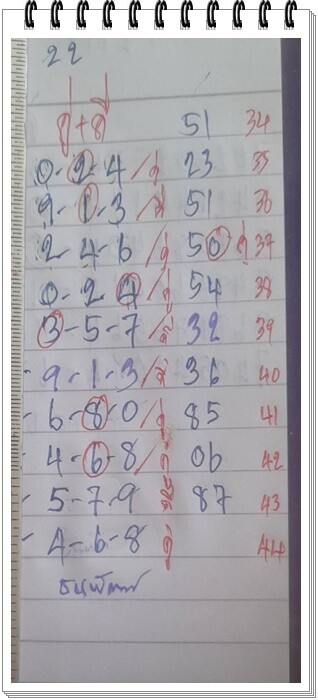 22
คู่+คี่ 51 34
0-2-4/คู่ 23 35
9-1-3/คี่ 51 36
2-4-6/คู่ 50 คู่ 37
0-2-4/คู่ 54 38
3-5-7/คี่ 32 39
- 9-1-3/คี่ 36 40
- 6-8-0/คู่ 85 41
- 4-6-8/คู่ 06 42
- 5-7-9 คี่ 87 43
- 4-6-8 คู่ 44